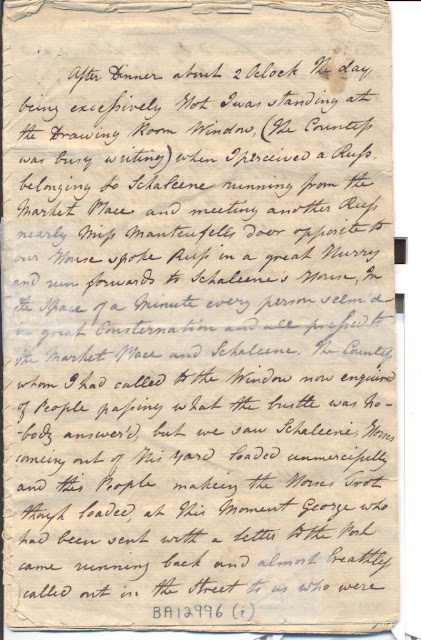 After Dinner about 2 Oclock The day
being excessively Hot I was standing at
the Drawing Room Window, (The Countess
was busy writing) when I perceived a Russ
belonging to Schaleene running from the
Market Place and meeting another Russ
nearly Miss Manteufells door opposite to
our House spoke Russ in a great Hurry
and run forwards to Schaleene's House, In
the Space of a Minute every person seem'd
in great Consternation and all pressed to
the Market Place and Schaleene. The Countess
whom I had called to the Window now enquired
of People passing what the bustle was no-
body answer'd, but we saw Schaleene's Horses
coming out of His Yard loaded unmercifully
and this People making the Horses Trott
though loaded, at This Moment George who
had been sent with a letter to the Post
came running back and almost breathless
called out in the Street to us who were
BA12996 (i)